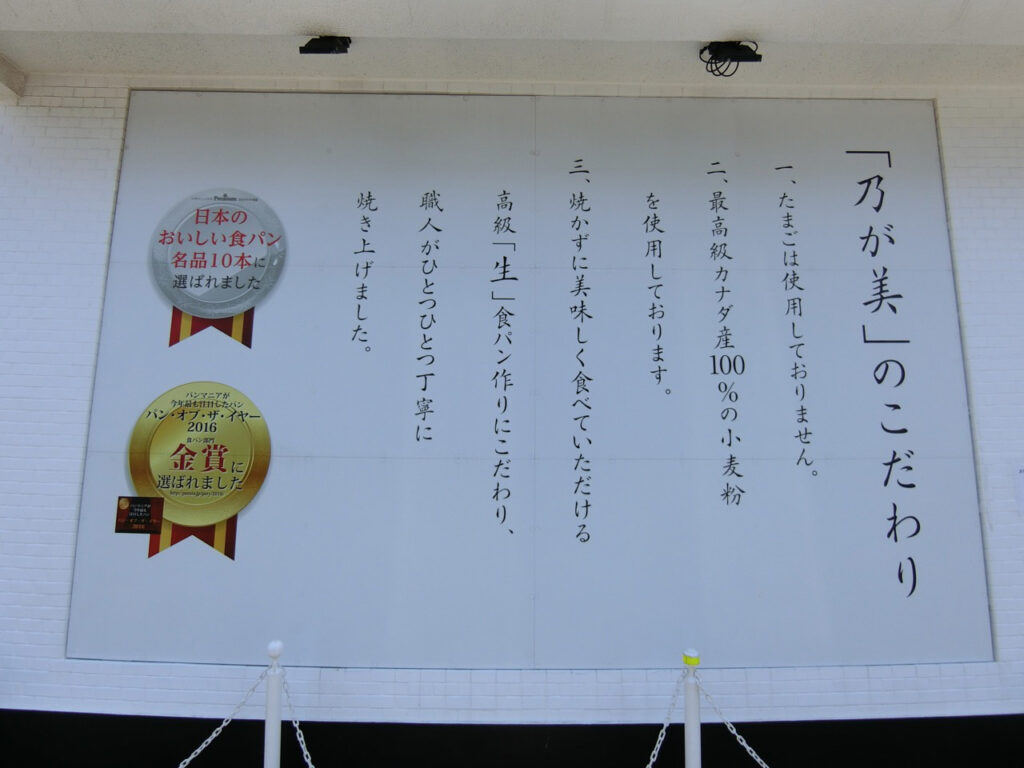 「乃が美」のこだわり
一、たまごは使用しておりません。
二、最高級カナダ産100%の小麦粉
を使用しております。
三、焼かずに美味しく食べていただける
高級「生」食パン作りにこだわり、
職人がひとつひとつ丁寧に
焼き上げました。
Premium
日本の
おいしい食パン
名品10本に
選ばれました
パンマニアが
今年最も注目したパン
パン・オブ・ザ・イヤー
2016
食パン部門
金賞に
選ばれました
パン・オブ・ザ・イヤー
2016